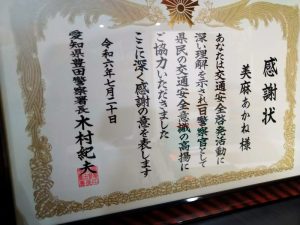 感謝状
美麻あかね様
あなたは交通安全啓発活動に
深い理解を示され一日警察官として
県民の交通安全意識の高揚に
ご協力いただきました
ここに深く感謝の意を表します
令和六年七月二十日
愛知県豊田警察署長 木村紀夫